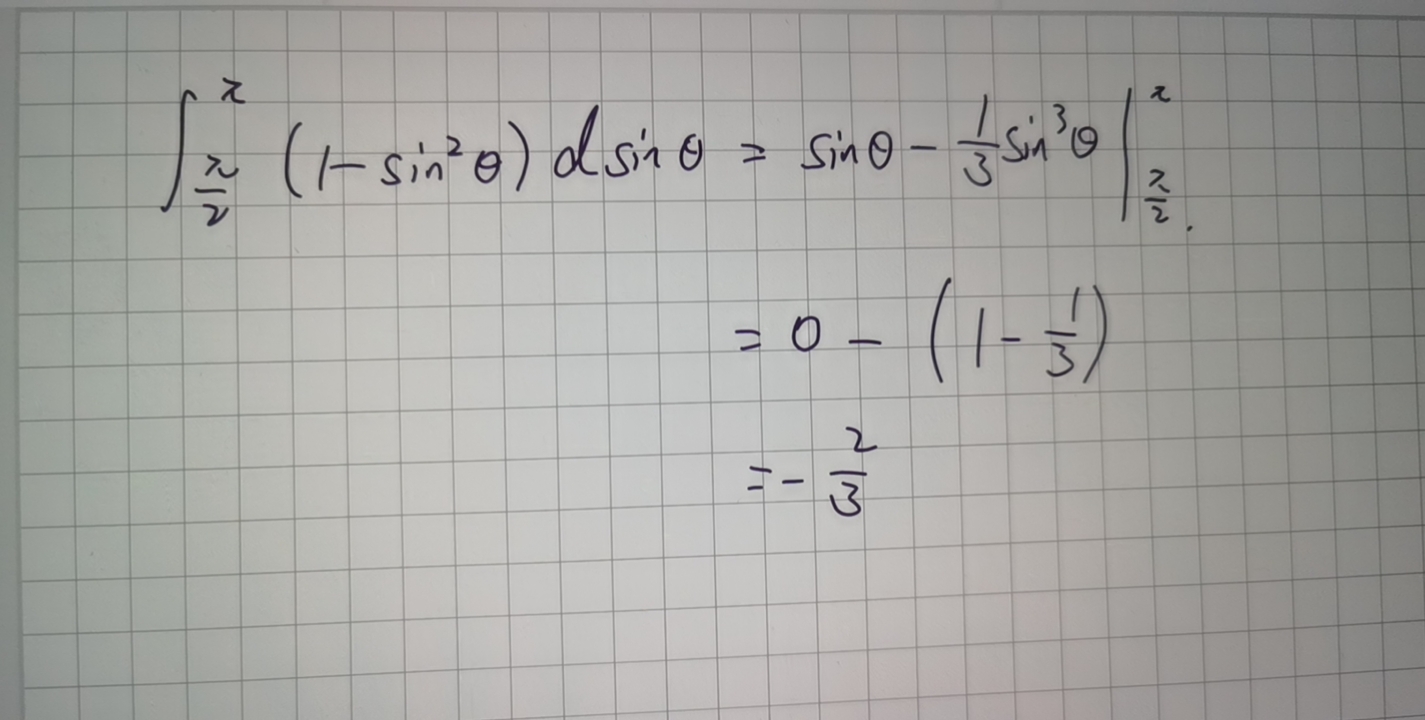 ∫_{π/2}^{π} (1 - sin² θ) d sin θ = sin θ - 1/3 sin³ θ |_{π/2}^{π}.
= 0 - (1 - 1/3)
= - 2/3